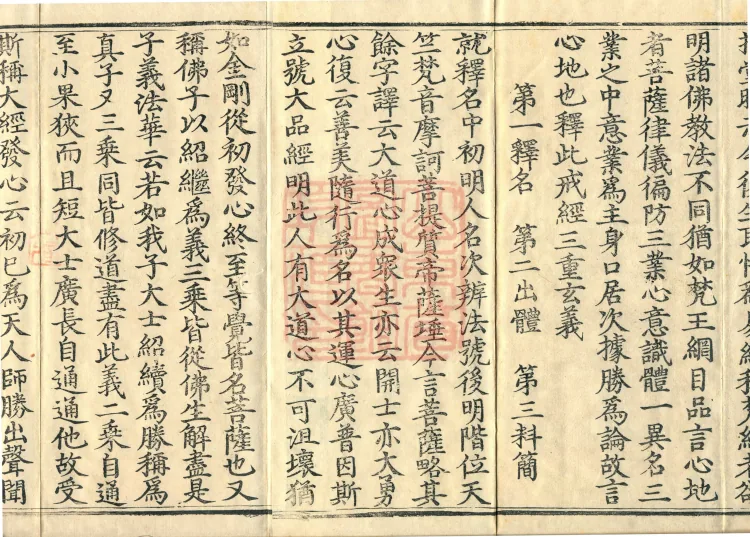 明諸佛教法不同猶如梵王網目品言心地
者菩薩律儀徧防三業心意識體一異名三
業之中意業為主身口居次據勝為論故言
心地也釋此戒經三重玄義
第一釋名 第二出體 第三料簡
就釋名中初明人名次辨法號後明階位天
竺梵音摩訶菩提質帝薩埵今言菩薩略其
餘字譯云大道心成衆生亦云開士亦大勇
心復云善美隨行為名以其運心廣普因斯
立號大品經明此人有大道心不可沮壞猶
如金剛從初發心終至等覺皆名菩薩也又
稱佛子以紹繼為義三乘皆從佛生解盡是
子義法華云若如我子大士紹續為勝稱為
真子又三乘同皆修道盡有此義二乘自通
至小果狹而且短大士廣長自通通他故受
斯稱大經發心云初已為天人師勝出聲聞